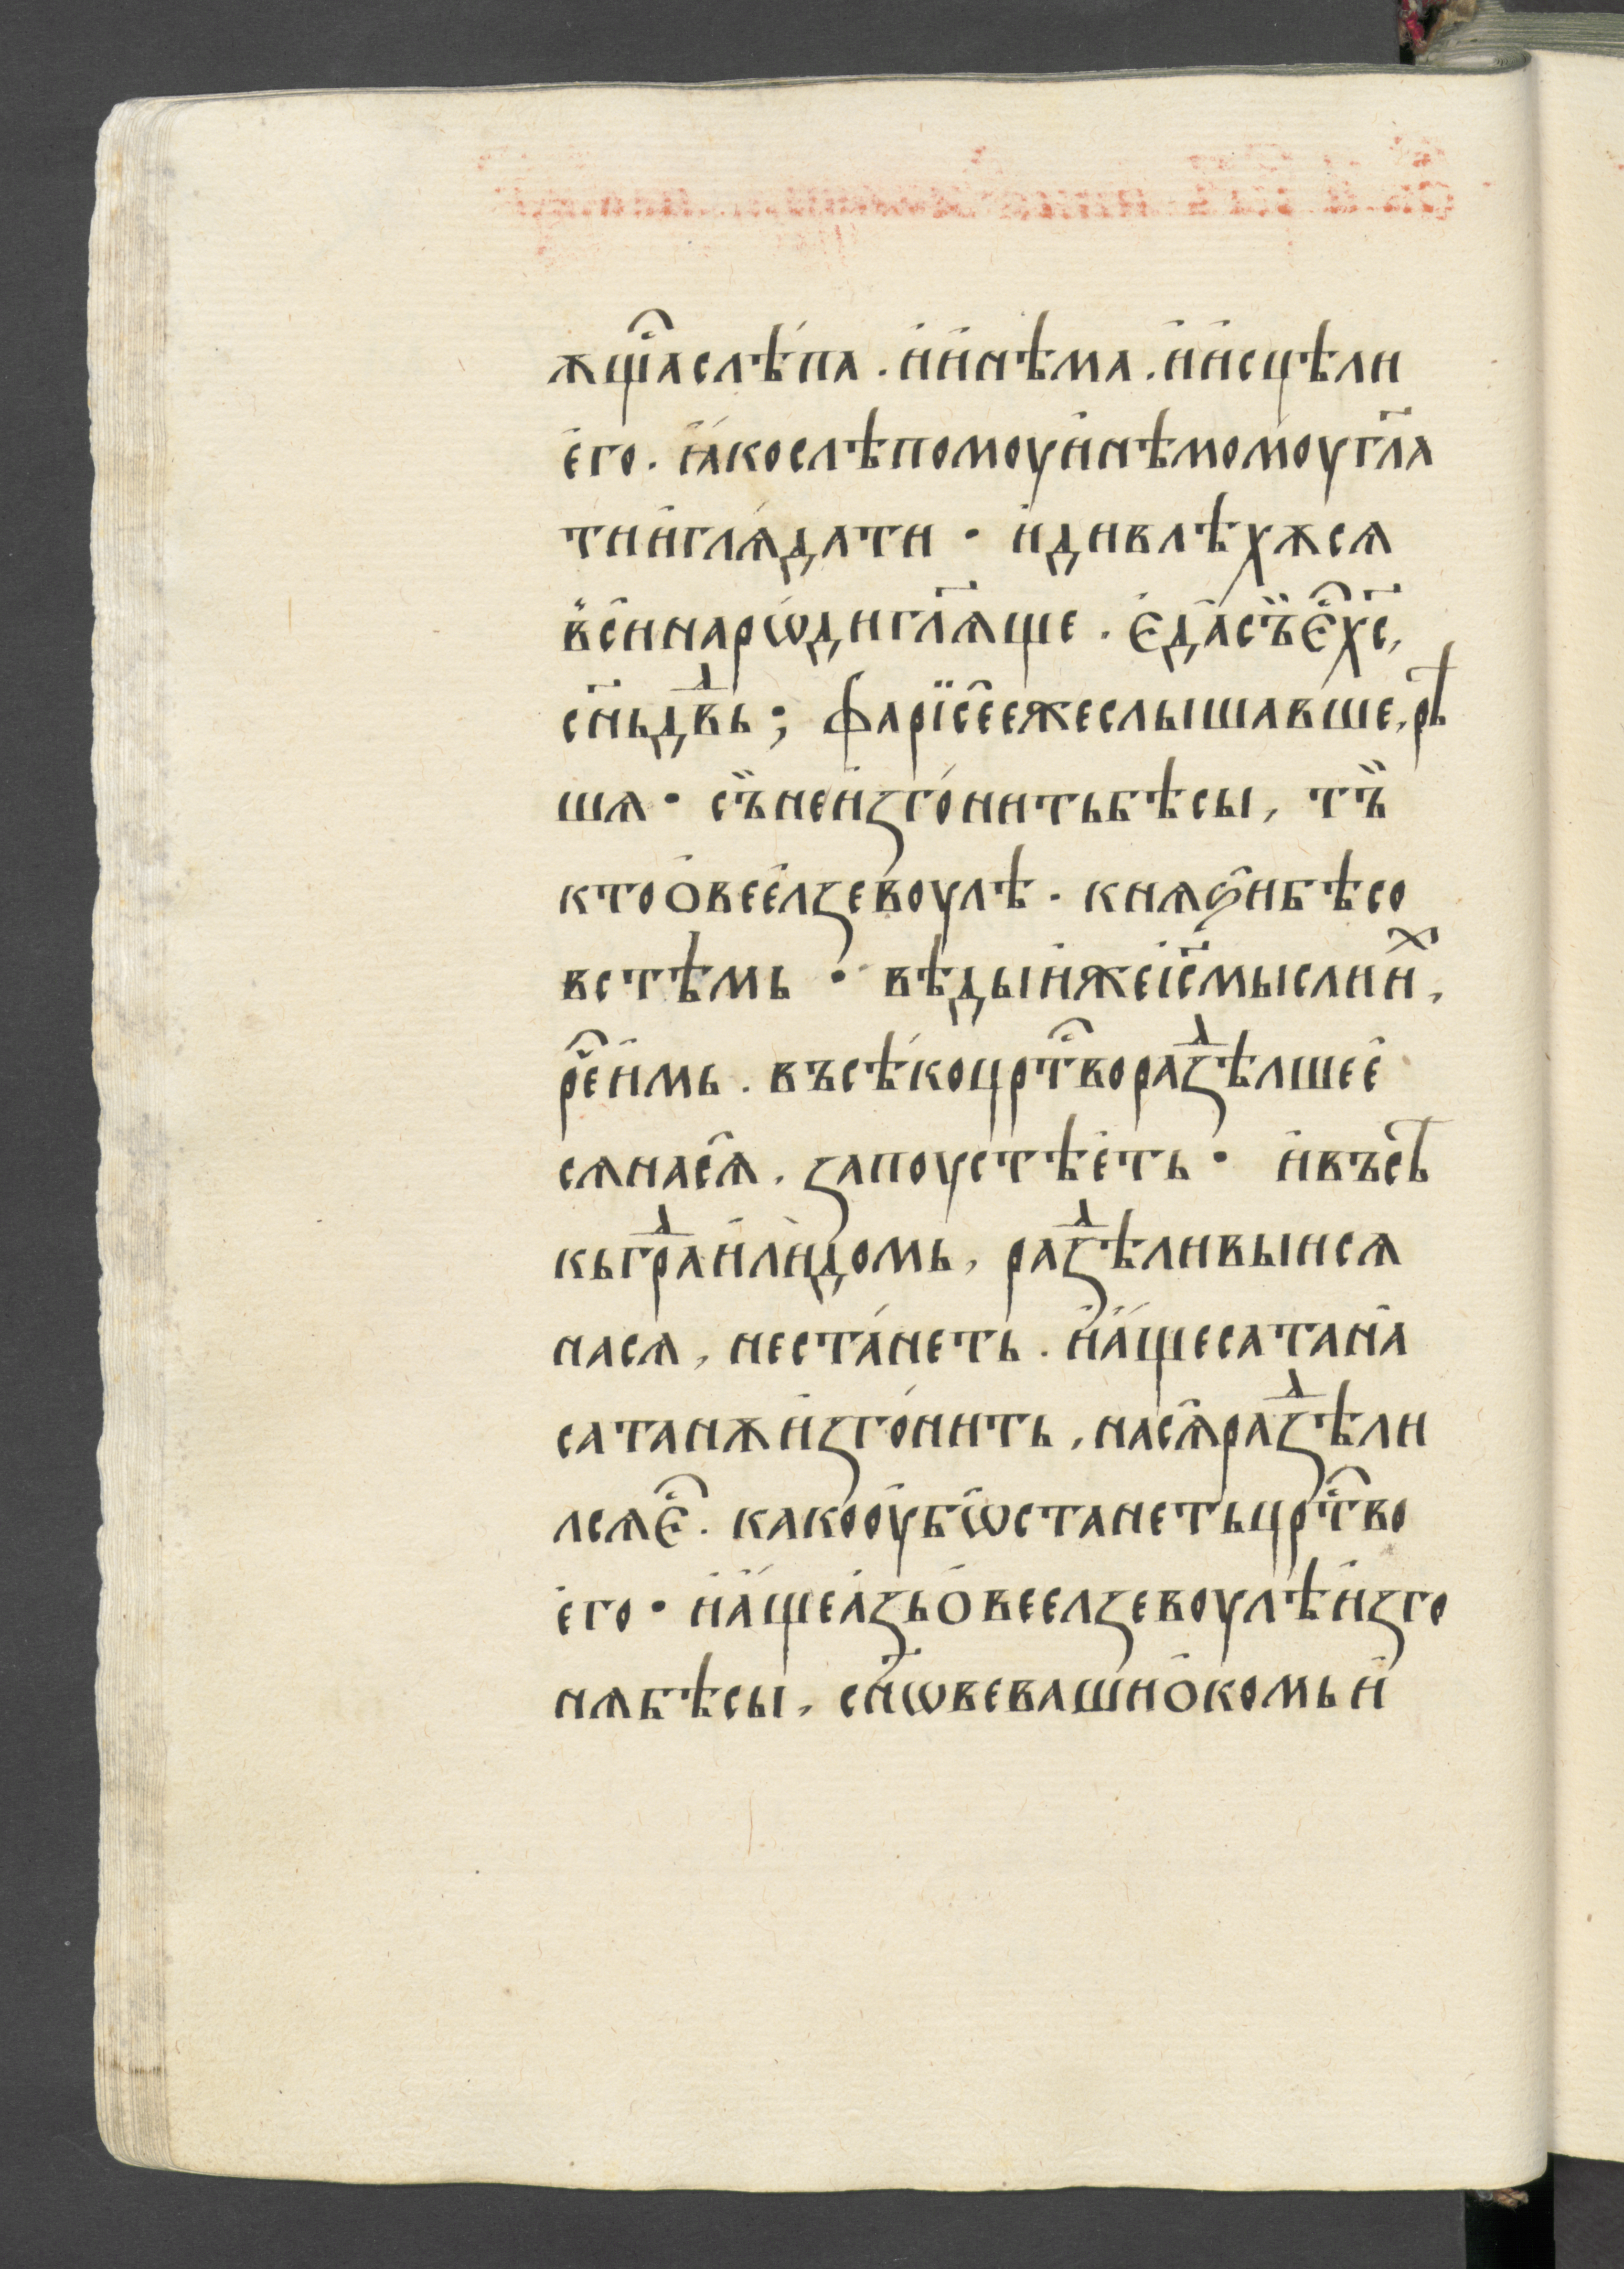 ѫщї҇аслѣ́па . и҆и҆нѣма . и҆и҆сцѣли
е҆го . и҆ꙗ҆кослѣпомоуи҆нѣмомоугл҃а
тии҆глѧ́дати · и҆дивлѣхѫсѧ
в҆се҆инарѡ́дигл҃ѧще . Є҆да҆съ̏є҆҇хс҃,
сн҃ьдⷣвь ; фарїсе҆ежеслышавше, рѣ
шѧ · съ̏неи҆ꙁго́нитьбѣсы, тъ̏
ктоо҆вее҆лꙁевоулѣ . кнѧꙃи҆бѣсо
встѣмь · вѣдыи҆жеі҆с҃мыслии҆ⷯ,
ре҇и҆мь . въсѣ́коцрт҇вораꙁⷣѣлшее҆
сѧнасѧ҆ . ꙁапоустѣе҆ть · и҆въсѣ
кьграⷣи҆лѝдомь, раꙁⷣѣливыисѧ
насѧ, неста́неть . и҆а҆́щесатана҆
сатанѫи҆ꙁго́нить, насѧ҆раꙁⷣѣли
лсѧє҆҇ . какоо҆убѡ҆станетьцрт҇во
е҆го · и҆а҆́щеа҆ꙁьо҆веелꙁевоулѣи҆ꙁго
нѧбѣсы, сн҃ѡвевашио҆комьи҆